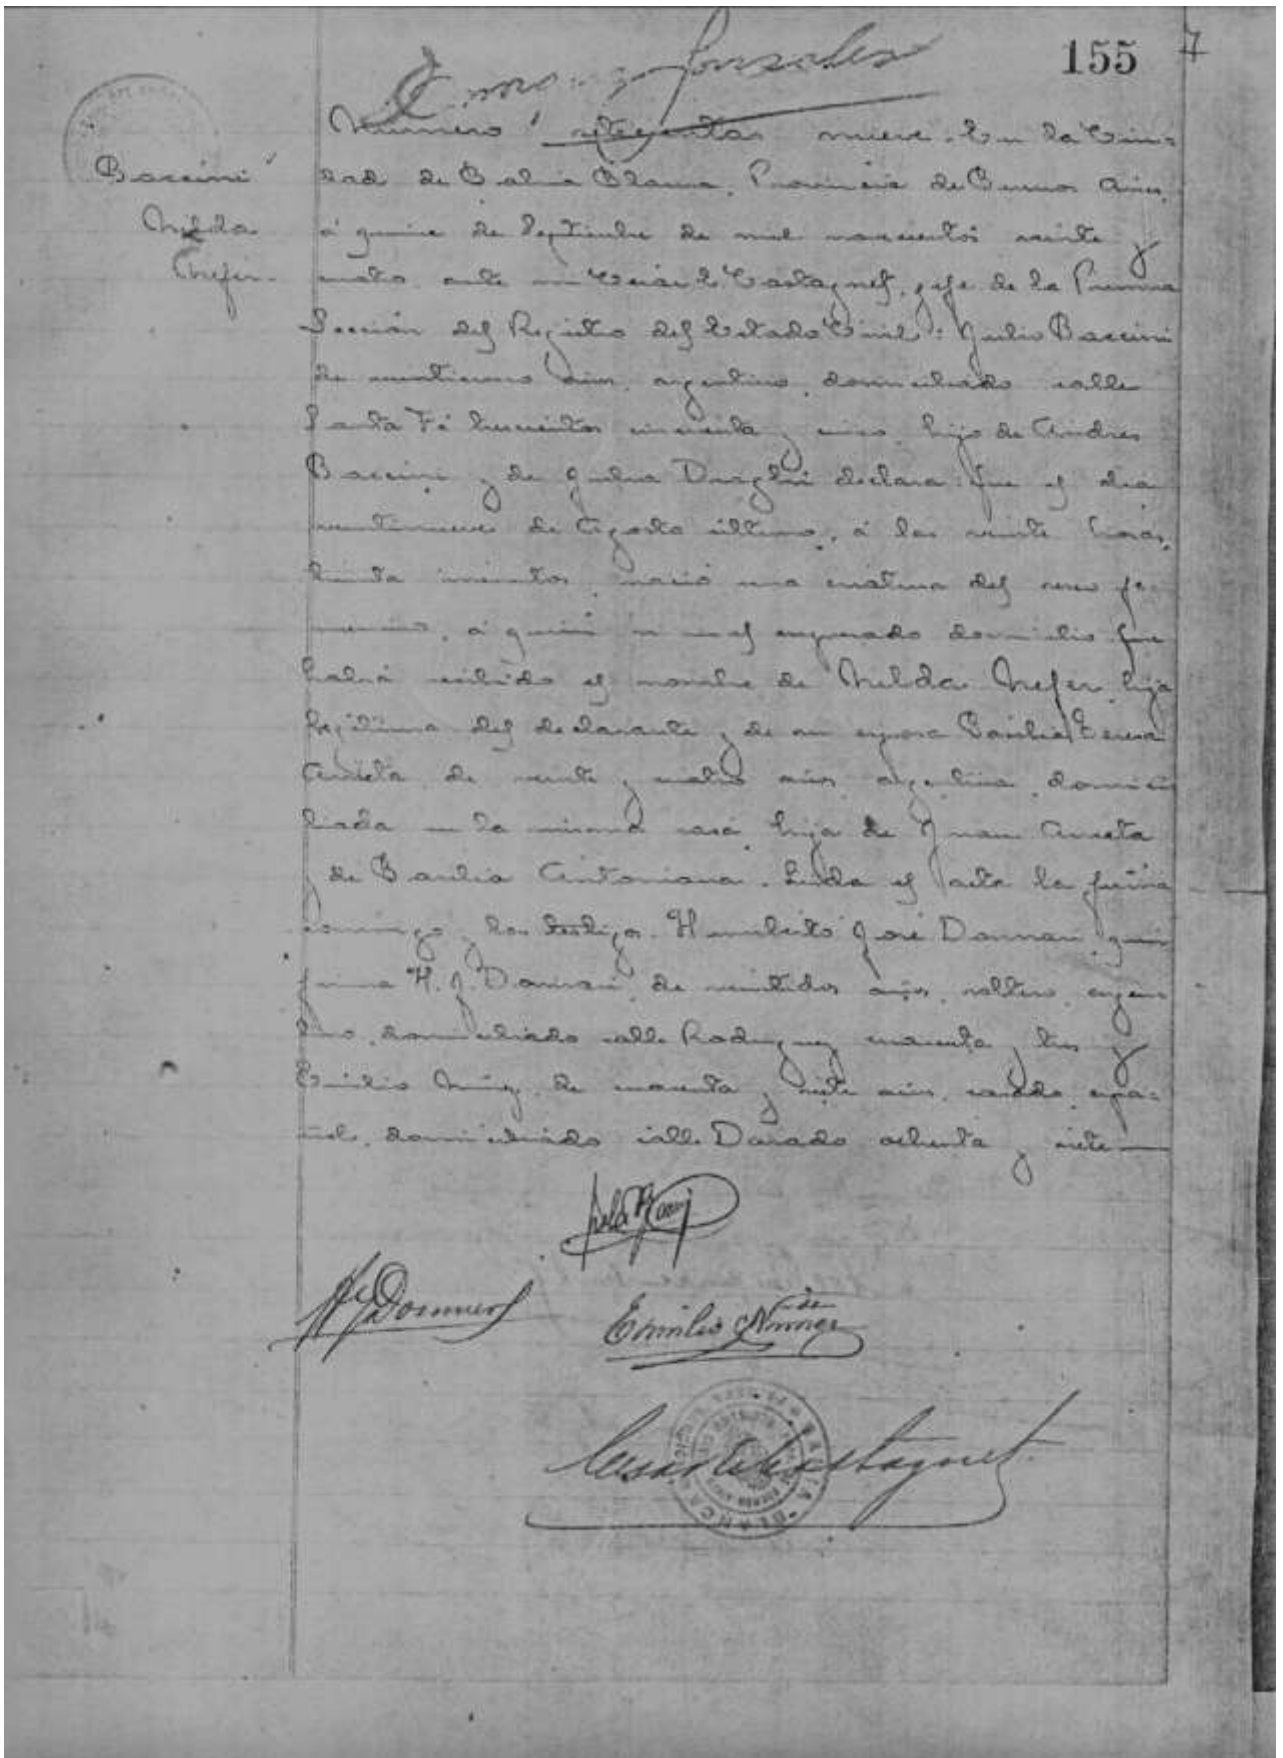 155
7
Gonzales
Baccini
Nilda
Nefer.
Número setecientos nueve. En la Ciu-
dad de Bahia Blanca, Provincia de Buenos Aires,
á quince de Septiembre de mil novecientos veinte y
cuatro, ante mi César C. Castagnet, gefe de la Primera
Sección del Registro del Estado Civil: Julio Baccini
de años, argentino, domiciliado calle
Santa Fé trescientos cincuenta y cinco, hijo de Andres
Baccini y de Julia declara: Que el dia
veintinueve de Agosto último, á las veinte horas,
treinta minutos, nació una criatura del sexo fe-
menino, á quien vi en el expresado domicilio, que
habrá recibido el nombre de Nilda Nefer, hija
legítima del declarante y de su esposa Teresa
Arrieta, de veinte y cuatro años, argentina, domici
liada en la misma casa, hija de Juan Arrieta
y de Antoniana. Leida el acta la firma
conmigo y los testigos. Humberto José quien
firma H. J. de veintidos años, soltero, argen
tino, domiciliado calle Rodriguez cuarenta y tres y
Emilio de cuarenta y siete años, casado, espa-
ñol, domiciliado calle Darado ochenta y siete
Emilio
Cesar C. Castagnet
BAHIA BLANCA